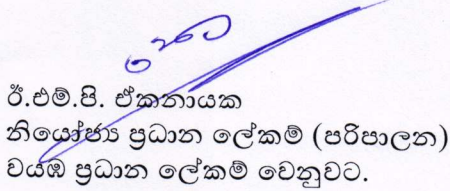 ඊ.එම්.පී. ඒකනායක
නියෝජ්‍ය ප්‍රධාන ලේකම් (පරිපාලන)
වයඹ ප්‍රධාන ලේකම් වෙනුවට.